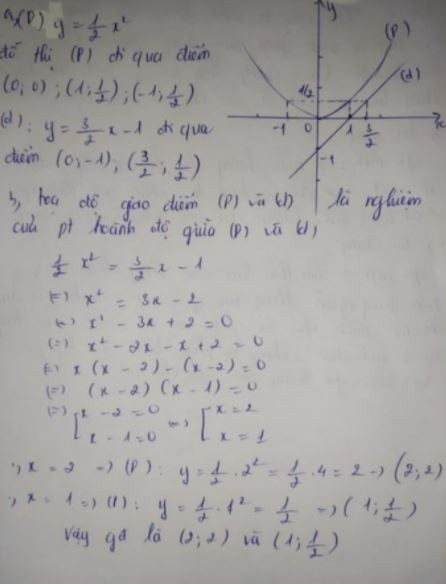 a, (P) y = 1/2 x²
đồ thị (P) đi qua điểm
(0; 0) ; (1; 1/2) ; (-1; 1/2)
(d) : y = 3/2 x - 1 đi qua
điểm (0; -1) ; (3/2 ; 1/2)
y
(P)
(d)
1/2
-1 0 1 3/2 x
-1
b, toạ độ giao điểm (P) và (d) là nghiệm
của pt hoành độ giữa (P) và (d)
1/2 x² = 3/2 x - 1
(=) x² = 3x - 2
(=) x² - 3x + 2 = 0
(=) x² - 2x - x + 2 = 0
(=) x (x - 2) - (x - 2) = 0
(=) (x - 2) (x - 1) = 0
(=) [ x - 2 = 0 (=) [ x = 2
x - 1 = 0 x = 1
x = 2 => (P) : y = 1/2 . 2² = 1/2 . 4 = 2 => (2; 2)
x = 1 => (P) : y = 1/2 . 1² = 1/2 => (1; 1/2)
vậy gđ là (2; 2) và (1; 1/2)